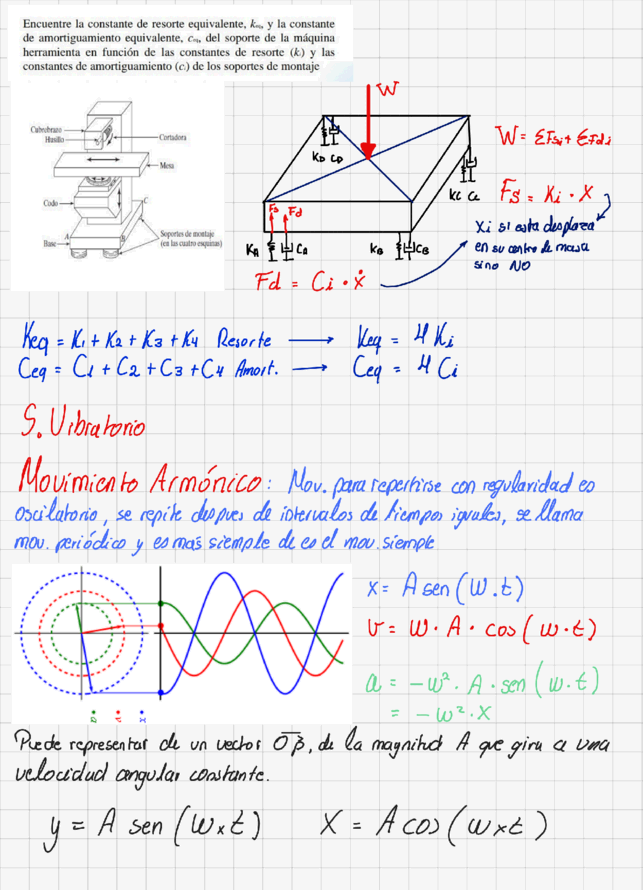 Encuentre la constante de resorte equivalente, kₑq, y la constante
de amortiguamiento equivalente, cₑq, del soporte de la máquina
herramienta en función de las constantes de resorte (kᵢ) y las
constantes de amortiguamiento (cᵢ) de los soportes de montaje
Cabrebrazo
Husillo
Cortadora
Mesa
Codo
C
A
B
Base
Soportes de montaje
(en las cuatro esquinas)
W
KD CD
KC CC
Fs Fd
KA CA
KB CB
W = ΣFsi + ΣFdi
Fs = Ki · X
Xi si esta desplaza
en su centro de masa
sino NO
Fd = Ci · ẋ
Keq = K1 + K2 + K3 + K4 Resorte → Keq = 4 Ki
Ceq = C1 + C2 + C3 + C4 Amort. → Ceq = 4 Ci
S. Vibratorio
Movimiento Armónico: Mov. para repertirse con regularidad es
oscilatorio, se repite despues de intervalos de tiempos iguales, se llama
mov. periódico y es mas siemple de es el mov. siemple
x = A sen (W.t)
v = w · A · cos (w·t)
a = -w² · A · sen (w·t)
= -w² · X
Puede representar de un vector OP, de la magnitud A que gira a una
velocidad angular constante.
y = A sen (wxt) X = A cos (wxt)